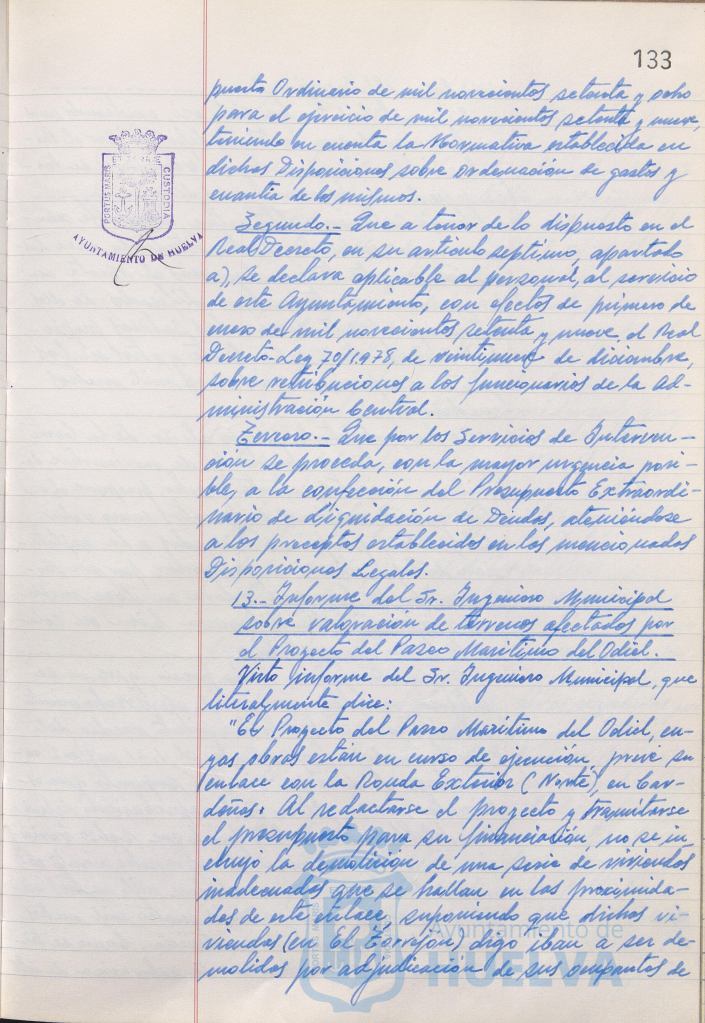 133
puesto Ordinario de mil novecientos setenta y ocho
para el ejercicio de mil novecientos setenta y nueve,
teniendo en cuenta la Normativa establecida en
dichas Disposiciones sobre ordenación de gastos y
cuantía de los mismos.
PORTUS MARIS CUSTODIA
AYUNTAMIENTO DE HUELVA
Segundo.- Que a tenor de lo dispuesto en el
Real Decreto, en su artículo septimo, apartado
a), se declara aplicable al personal, al servicio
de este Ayuntamiento, con efectos de primero de
enero de mil novecientos setenta y nueve, el Real
Decreto-Ley 70/1.978, de veintinueve de diciembre,
sobre retribuciones a los funcionarios de la Ad-
ministración Central.
Tercero.- Que por los Servicios de Interven-
ción se proceda, con la mayor urgencia posi-
ble, a la confección del Presupuesto Extraordi-
nario de Liquidación de Deudas, ateniéndose
a los preceptos establecidos en las mencionadas
Disposiciones Legales.
13.- Informe del Sr. Ingeniero Municipal
sobre valoración de terrenos afectados por
el Proyecto del Paseo Marítimo del Odiel.
Visto informe del Sr. Ingeniero Municipal, que
literalmente dice:
"El Proyecto del Paseo Marítimo del Odiel, cu-
yas obras están en curso de ejecución, prevé su
enlace con la Ronda Exterior (Norte), en Car-
deñas. Al redactarse el proyecto y tramitarse
el presupuesto para su financiación, no se in-
cluyó la demolición de una serie de viviendas
inadecuadas que se hallan en las proximida-
des de este enlace, suponiendo que dichas vi-
viendas (en El Torrejón) digo iban a ser de-
molidas por adjudicación de sus ocupantes de
Ayuntamiento de
HUELVA